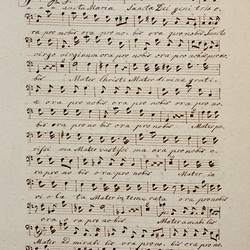 Sancta Maria Sancta Dei genitrix o
ra pro nobis ora pro no bis ora pro nobis Sancta
virgo virginum ora pro nobis ora pro nobis pro no
bis Mater Christi Mater divinæ grati
æ ora pro nobis ora pro nobis ora pro no
bis ora pro no bis ora pro nobis Mater pu
rissi ma Mater castissi ma ora pro nobis o
ra pro no bis ora pro nobis Mater in
vi o la ta Mater in teme rata ora pro nobis
ora o ra pro nobis Mater amabi lis
Mater ad mirabi lis ora pro no bis, ora pro no